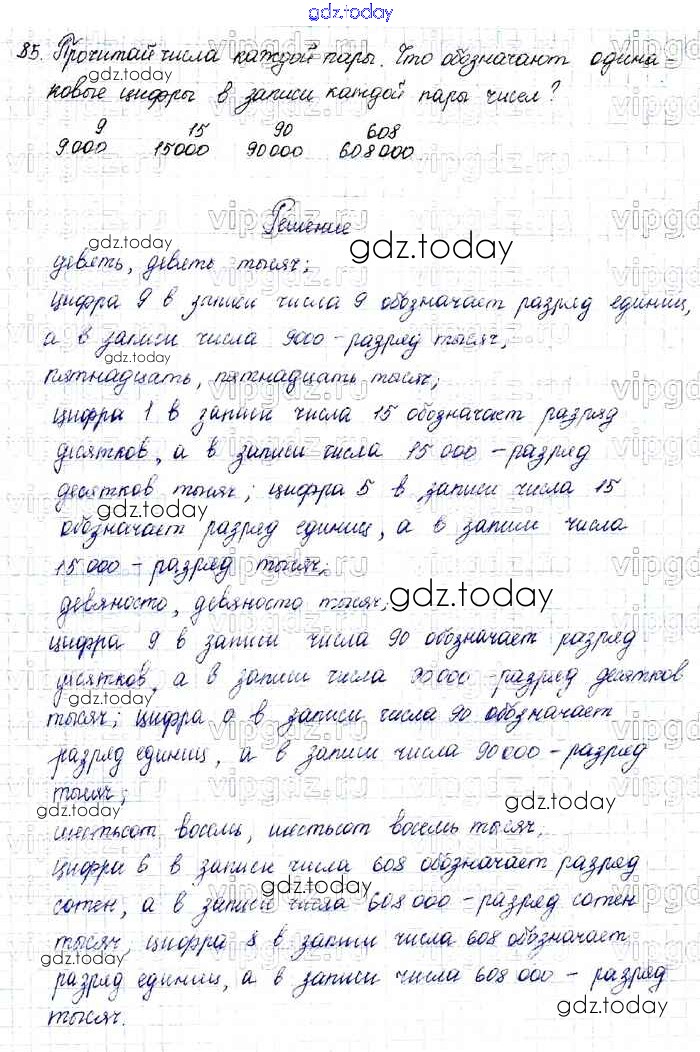 gdz.today
85. Прочитай числа каждой пары. Что обозначают одина-
ковые цифры в записи каждой пары чисел?
9 15 90 608
9000 15000 90000 608000
Решение
девять, девять тысяч;
цифра 9 в записи числа 9 обозначает разряд единиц,
а в записи числа 9000 - разряд тысяч;
пятнадцать, пятнадцать тысяч;
цифра 1 в записи числа 15 обозначает разряд
десятков, а в записи числа 15 000 - разряд
десятков тысяч; цифра 5 в записи числа 15
обозначает разряд единиц, а в записи числа
15 000 - разряд тысяч;
девяносто, девяносто тысяч;
цифра 9 в записи числа 90 обозначает разряд
десятков, а в записи числа 90000 - разряд десятков
тысяч; цифра 0 в записи числа 90 обозначает
разряд единиц, а в записи числа 90 000 - разряд
тысяч;
шестьсот восемь, шестьсот восемь тысяч.
цифра 6 в записи числа 608 обозначает разряд
сотен, а в записи числа 608 000 - разряд сотен
тысяч, цифра 8 в записи числа 608 обозначает
разряд единиц, а в записи числа 608 000 - разряд
тысяч.